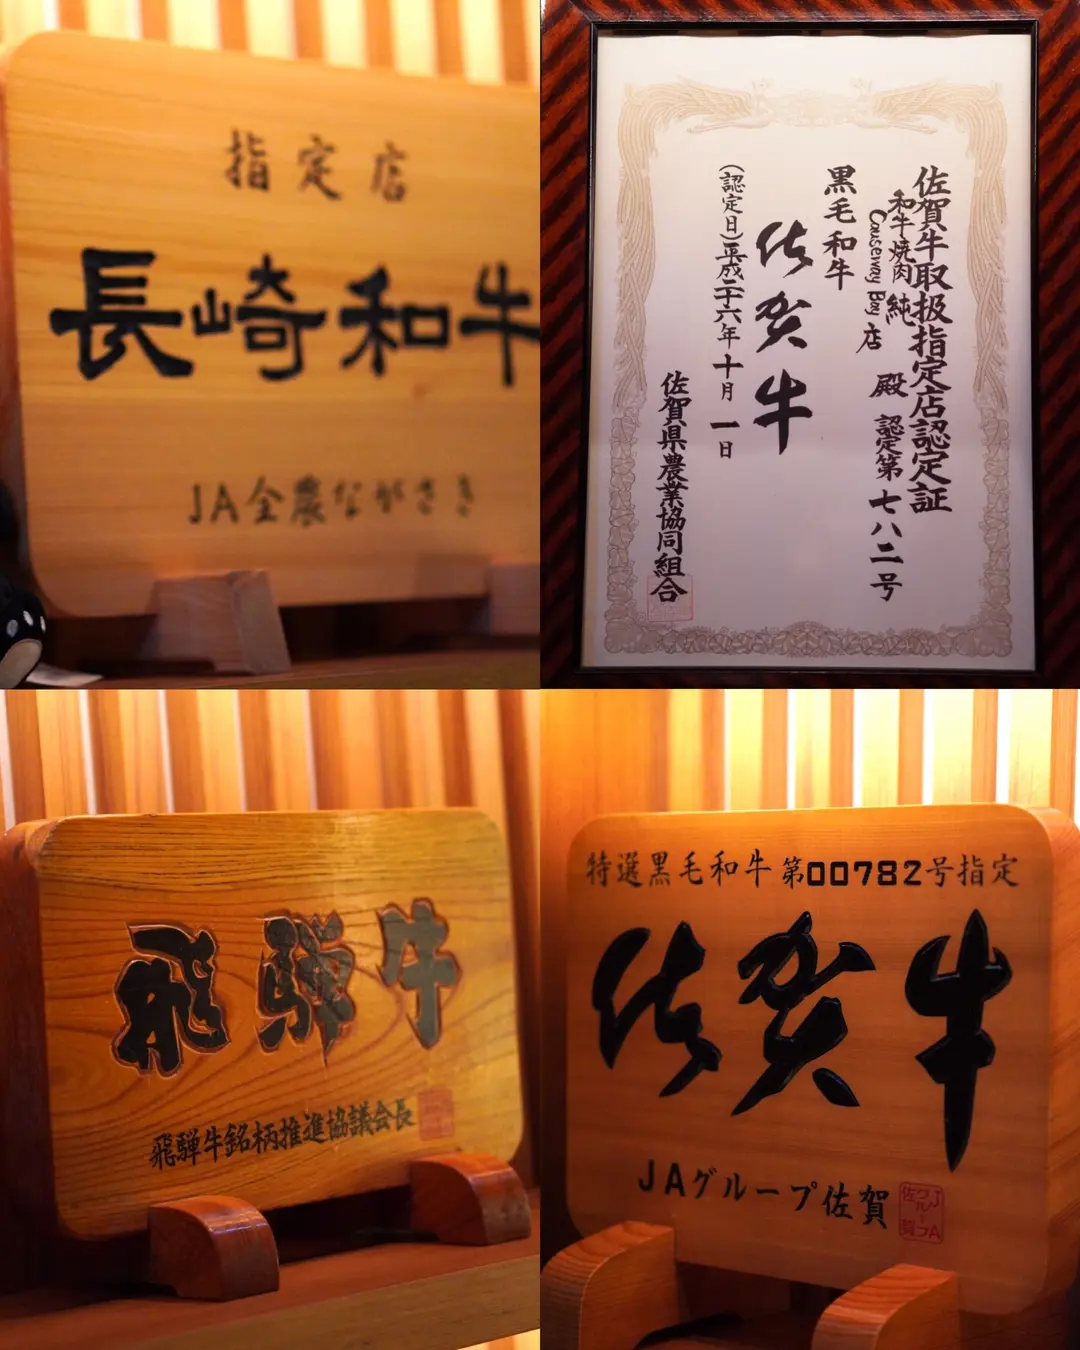 指定店
長崎和牛
JA全農ながさき
佐賀牛取扱指定店認定証
和牛焼肉 純
Causeway Bay 店
殿
認定第七八二号
黒毛和牛
佐賀牛
(認定日)平成二十六年十月一日
佐賀県農業協同組合
飛騨牛
飛騨牛銘柄推進協議会長
特選黒毛和牛 第00782号指定
佐賀牛
JAグループ佐賀
JA
グループ
佐賀